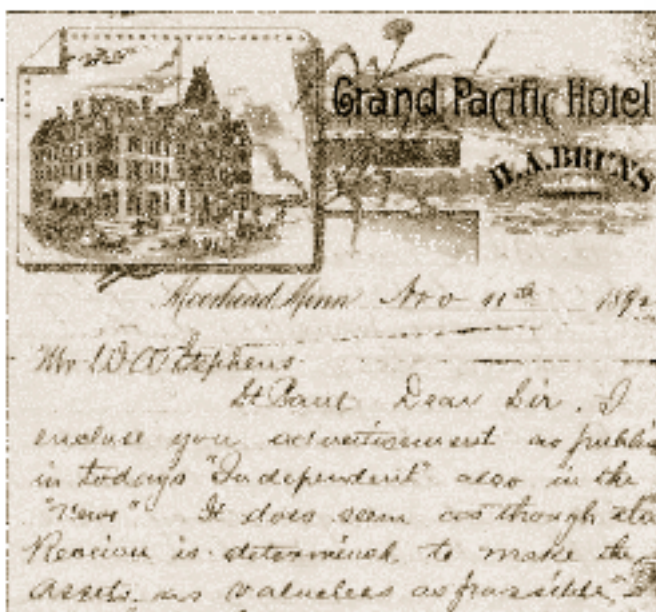 Grand Pacific Hotel
H. A. BRUNS
Moorhead, Minn Nov 11th 189
Mr W A Stephens
St Paul Dear Sir. I
enclose you advertisement as publis
in todays "Independent" also in the
"News" It does seem as though the
Receiver is determined to make the
assets as valueless as possible